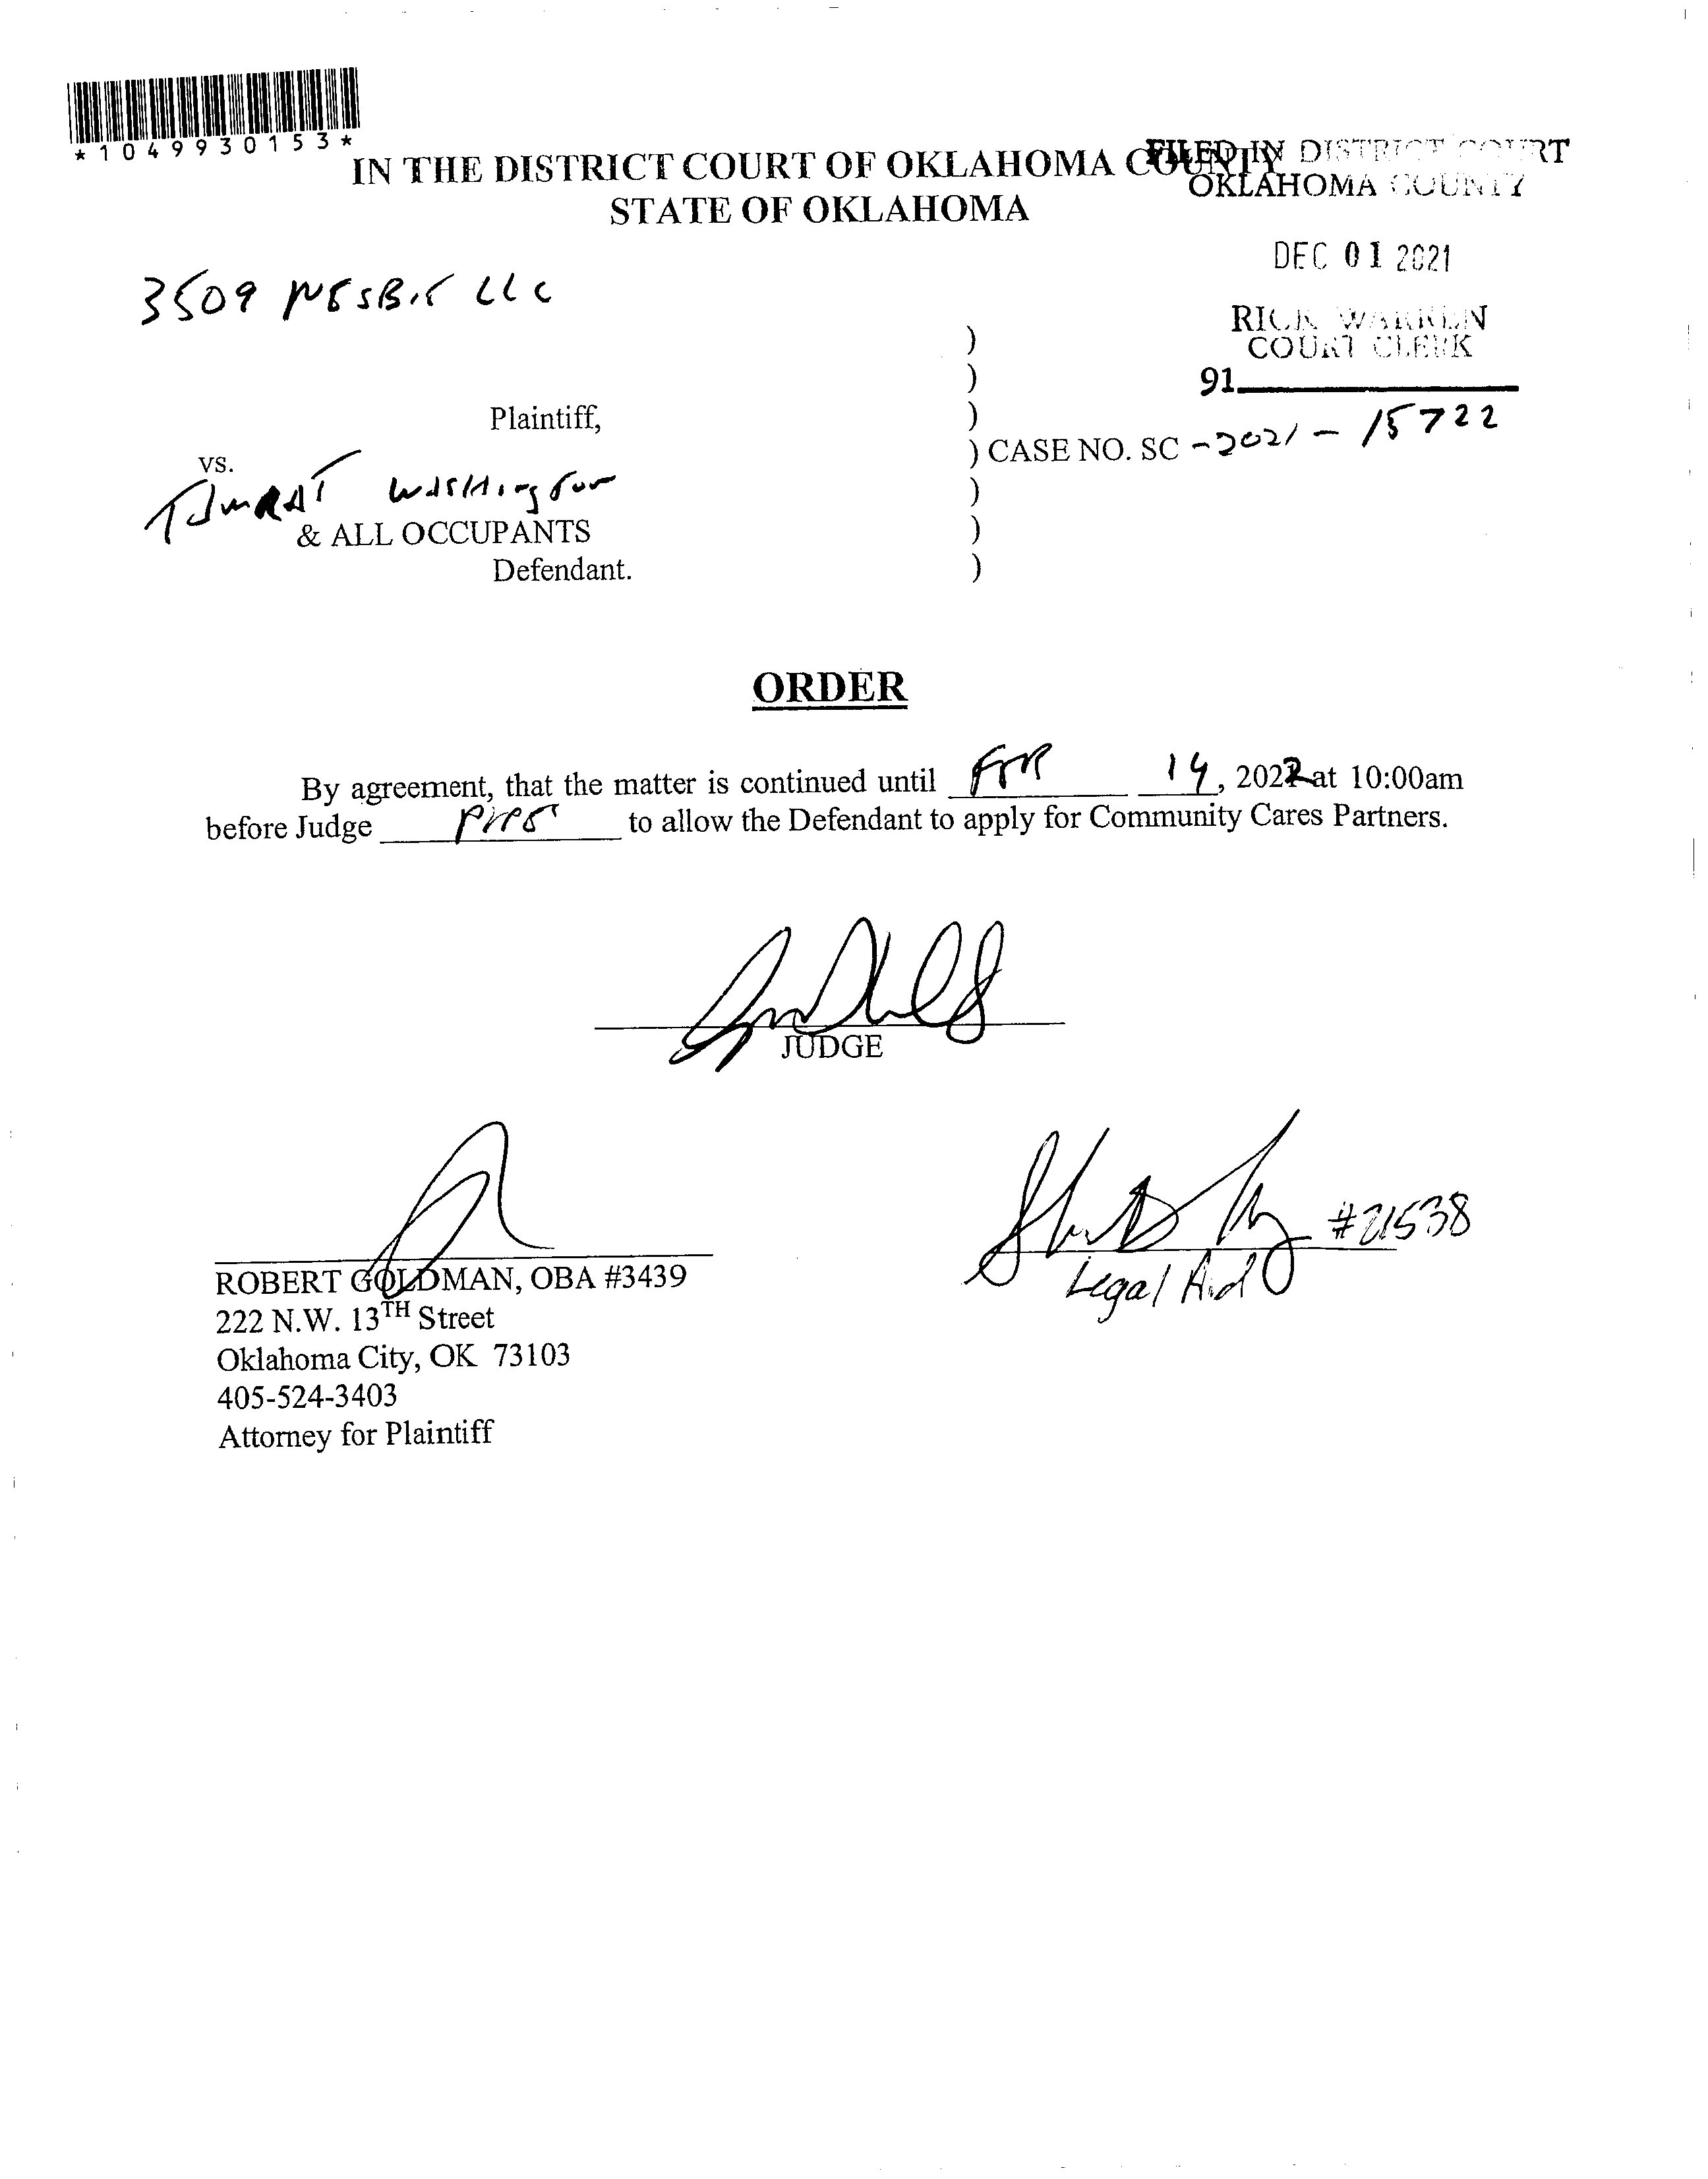 *1049930153*
IN THE DISTRICT COURT OF OKLAHOMA COUNTY
STATE OF OKLAHOMA
FILED IN DISTRICT COURT
OKLAHOMA COUNTY
DEC 01 2021
RICK WARREN
COURT CLERK
91
3509 NESBIT LLC
Plaintiff,
) CASE NO. SC -2021 - 15722
vs.
WASHINGTON
& ALL OCCUPANTS
Defendant.
ORDER
By agreement, that the matter is continued until 14, 2022 at 10:00am
before Judge to allow the Defendant to apply for Community Cares Partners.
JUDGE
#21538
Legal Aid
ROBERT GOLDMAN, OBA #3439
222 N.W. 13TH Street
Oklahoma City, OK 73103
405-524-3403
Attorney for Plaintiff